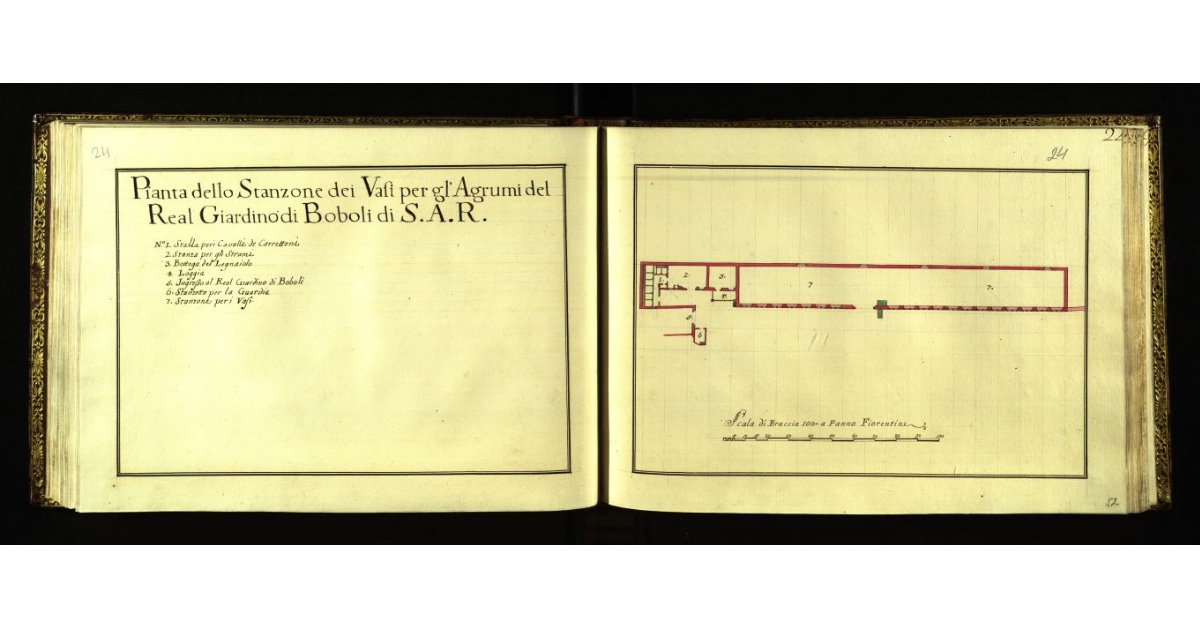 24
Pianta dello Stanzone dei Vasi per gl'Agrumi del
Real Giardino di Boboli di S.A.R.
N.º 1. Stalla per i Cavalli de Carrettoni
2. Stanza per gli Strami
3. Bottega del Legnaiolo
4. Loggia
5. Ingresso al Real Giardino di Boboli
6. Stanzetta per la Guardia
7. Stanzone per i Vasi.
24
2. 3. 7 7.
4.
5.
6
Scala di Braccia 100 a Panno Fiorentine
52